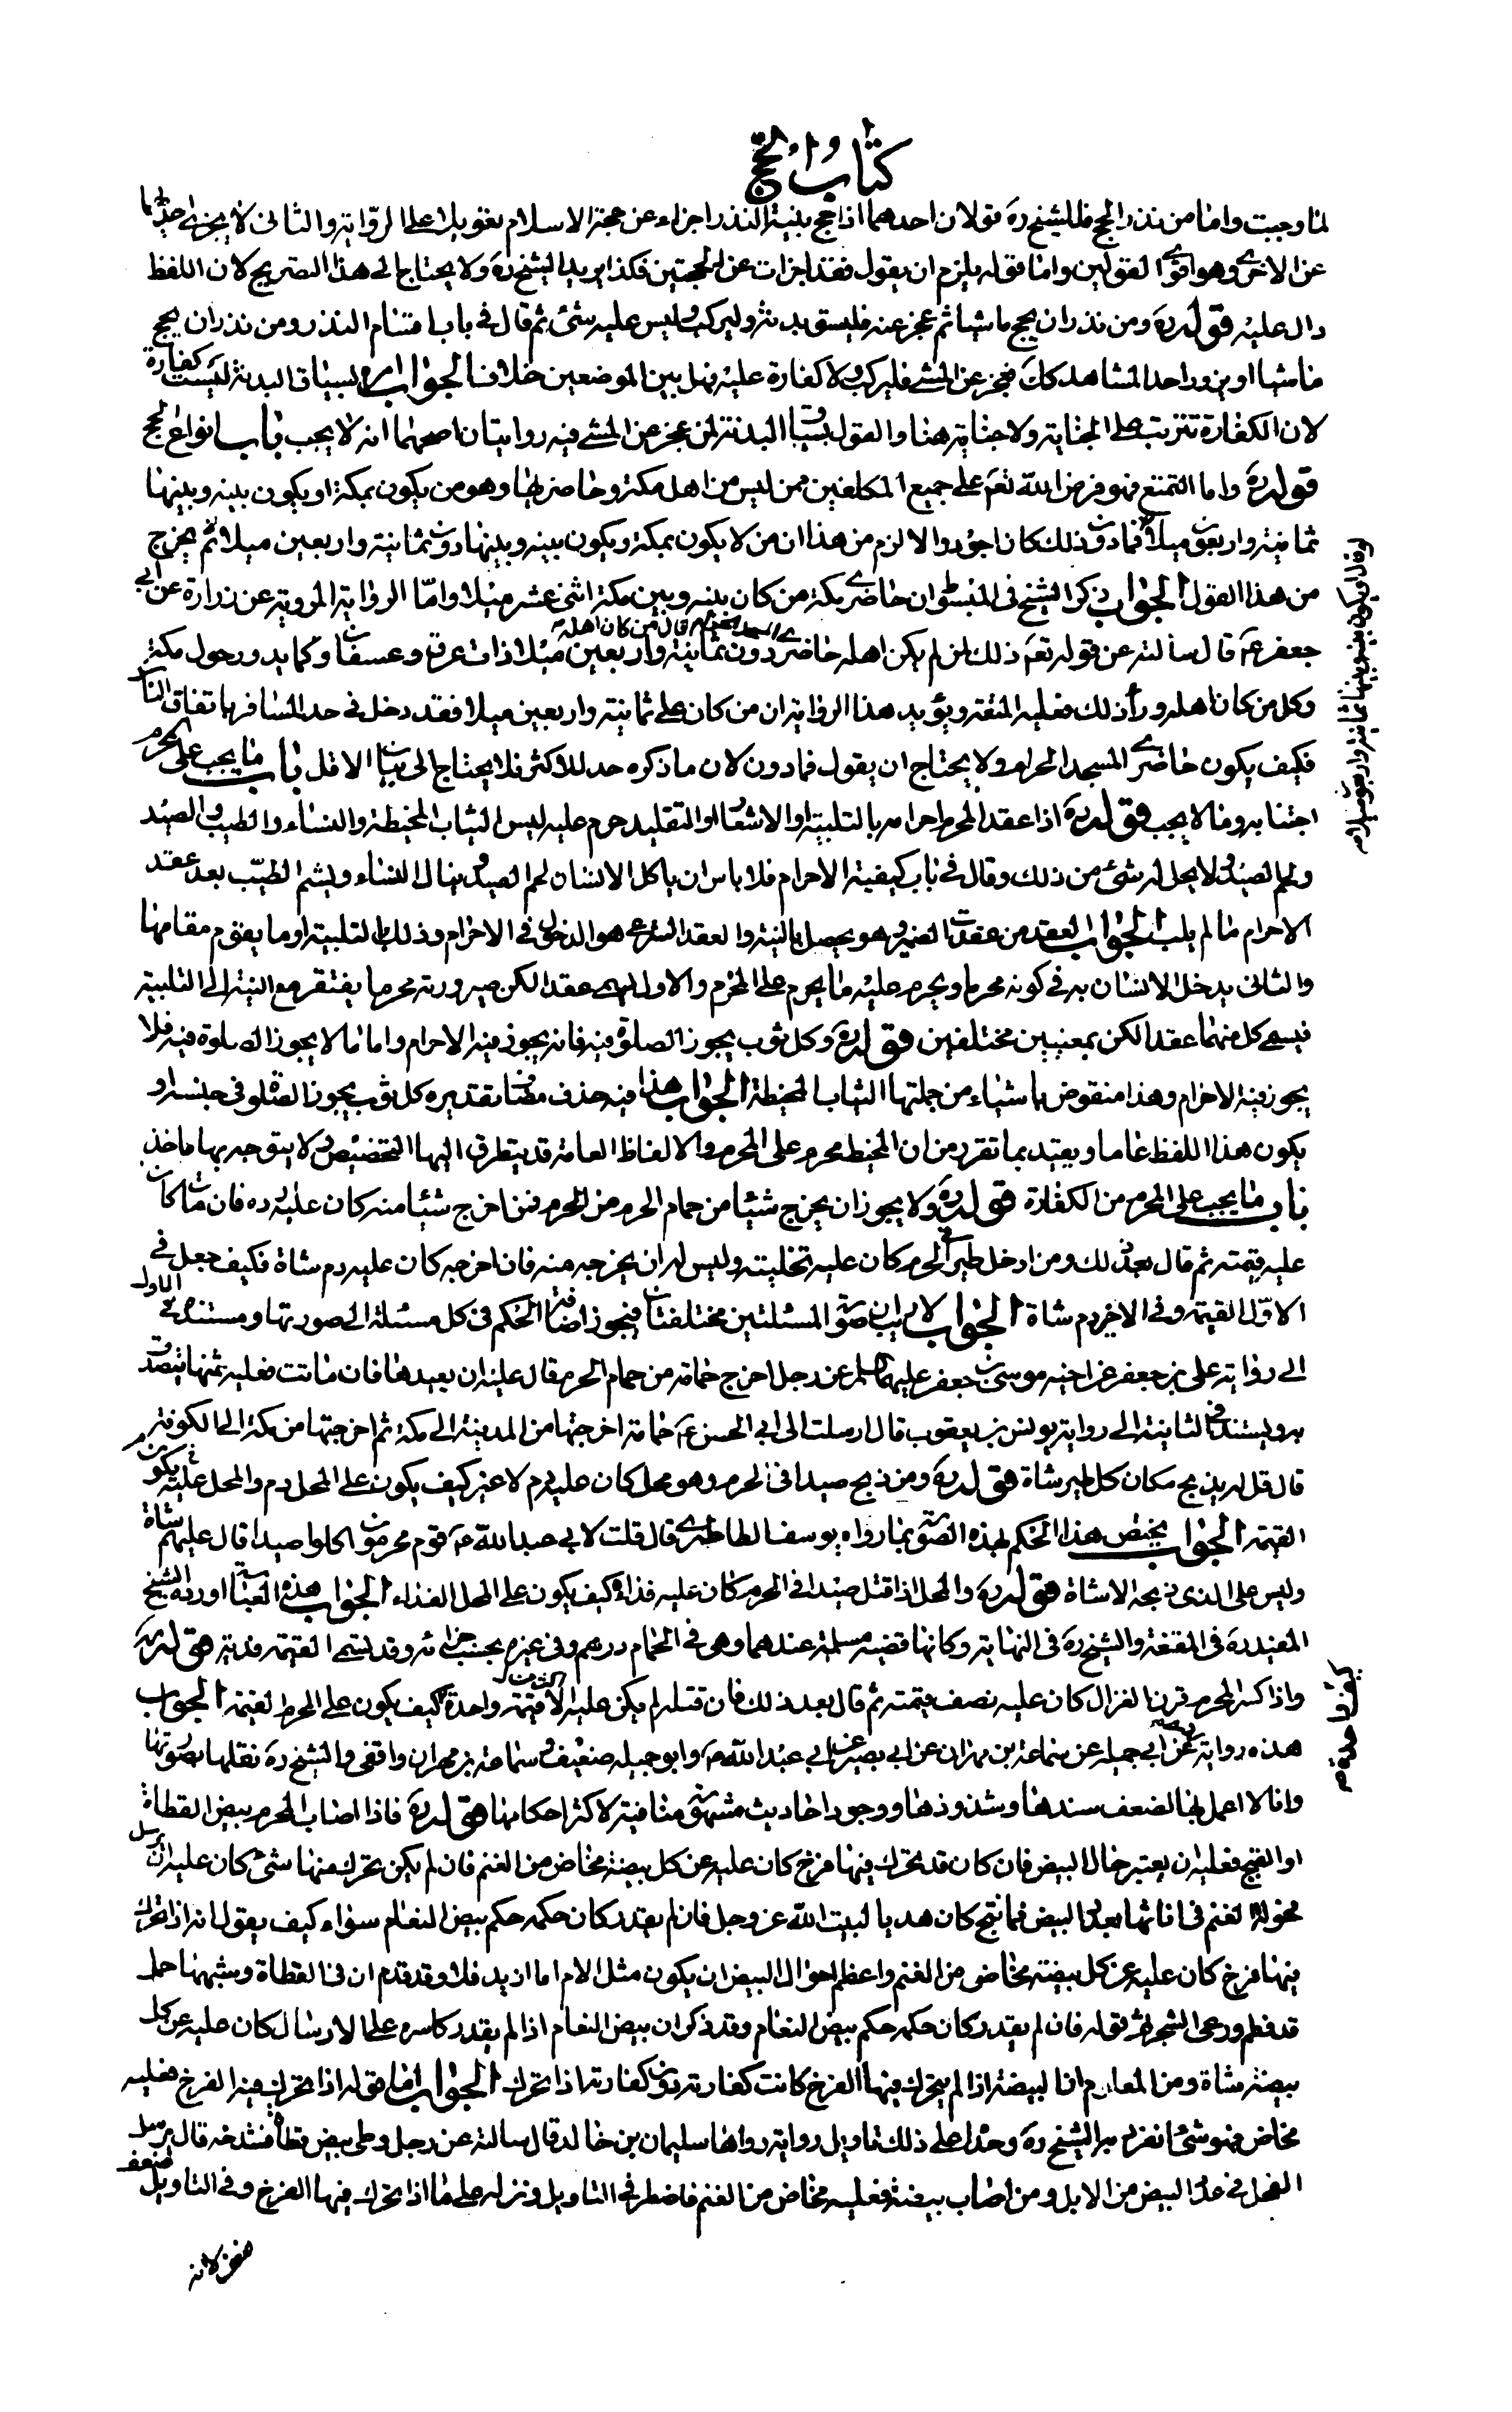 كتاب الحج
لما وجبت واما من نذر الحج فللشيخ ره قولان احدهما اذا حج بنية النذر اجزاء عن حجة الاسلام تعويلا على الرواية والثانى لا يجزى احديهما
عن الاخرى وهو اقوى القولين واما قوله يلزم ان يقول فقد اجزات عن الحجتين فكذا يريد الشيخ ره ولا يحتاج الى هذا التصريح لان اللفظ
دال عليه قوله ره ومن نذر ان يحج ماشيا ثم عجز عنه فليسق بدنة وليركب وليس عليه شئ ثم قال فى باب اقسام النذر ومن نذر ان يحج
ماشيا او يزور احد المشاهد كك فعجز عن المشى فليركب ولا كفارة عليه فهل بين الموضعين خلاف الجواب امره بسياق البدنة ليست كفارة
لان الكفارة تترتب على الجناية ولا جناية هنا والقول بسياق البدنة لمن عجز عن المشى فيه روايتان اصحهما انه لا يجب باب انواع الحج
قوله ره واما التمتع فهو فرض الله تعم على جميع المكلفين ممن ليس من اهل مكة وحاضريها وهو من يكون بمكة او يكون بينه وبينها
ثمانية واربعون ميلا فما دون ذلك كان اجود والا لزم من هذا ان من لا يكون بمكة ويكون بينه وبينها دون ثمانية واربعين ميلا ثم يخرج
من هذا القول الجواب ذكر الشيخ فى المبسوط ان حاضرى مكة من كان بينه وبين مكة اثنى عشر ميلا واما الرواية المروية عن زرارة عن ابى
جعفر ع قال سالته عن قوله تعم ذلك لمن لم يكن اهله حاضرى المسجد الحرام قال من كان اهله دون ثمانية واربعين ميلا ذات عرق وعسفان وكما يدور حول مكة
وكل من كان اهله وراء ذلك فعليه المتعة ويؤيد هذا الرواية ان من كان على ثمانية واربعين ميلا فقد دخل فى حد المسافر باتفاق النا
فكيف يكون حاضرى المسجد الحرام ولا يحتاج ان يقول فما دون لان ما ذكره حد للاكثر فلا يحتاج الى بيان الاقل باب ما يجب على المحرم
اجتنابه وما لا يجب قوله ره اذا عقد المحرم احرامه بالتلبية او الاشعار او التقليد حرم عليه لبس الثياب المخيطة والنساء والطيب والصيد
ولحم الصيد ولا يحل له شئ من ذلك وقال فى باب كيفية الاحرام فلا باس ان ياكل الانسان لحم الصيد وينال النساء ويشم الطيب بعد عقد
الاحرام ما لم يلب الجواب العقد من عقدت الضمير وهو يحصل بالنية والعقد الشرعى هو الدخول فى الاحرام وذلك بالتلبية او ما يقوم مقامها
والثانى يدخل الانسان به فى كونه محرما ويحرم عليه ما يحرم على المحرم والاول يسمى عقدا لكن صيرورته محرما يفتقر مع النية الى التلبية
فيسمى كل منهما عقدا لكن بمعنيين مختلفين قوله ره وكل ثوب يجوز الصلوة فيه فانه يجوز فيه الاحرام واما ما لا يجوز الصلوة فيه فلا
يجوز فيه الاحرام وهذا منقوض باشياء من جملتها الثياب المخيطة الجواب هذا فيه حذف مضاف تقديره كل ثوب يجوز الصلوة فى جنسه او
يكون هذا اللفظ عاما ويقيد بما تقرر من ان المخيط محرم على المحرم والالفاظ العامة قد يتطرق اليها التخصيص ولا يتوجه بها ماخذ
باب ما يجب على المحرم من الكفارة قوله ره ولا يجوز ان يخرج شيئا من حمام الحرم من الحرم فمن اخرج شيئا منه كان عليه رده فان مات كان
عليه قيمته ثم قال بعد ذلك ومن ادخل طيرا الحرم كان عليه تخليته وليس له ان يخرجه منه فان اخرجه كان عليه دم شاة فكيف جعل فى
الاول القيمة وفى الاخير دم شاة الجواب لا ريب ان صورتى المسئلتين مختلفتان فيجوز اضافة الحكم فى كل مسئلة الى صورتها ومستنده فى الاولى
الى رواية على بن جعفر عن اخيه موسى بن جعفر عليهما السلم عن رجل اخرج حمامة من حمام الحرم قال عليه ان يعيدها فان ماتت فعليه ثمنها يتصدق
به ويستند فى الثانية الى رواية يونس بن يعقوب قال ارسلت الى ابى الحسن ع حمامة اخرجتها من المدينة الى مكة ثم اخرجتها من مكة الى الكوفة
قال قل له يذبح مكان كل طير شاة قوله ره ومن ذبح صيدا فى الحرم وهو محل كان عليه دم لا غير كيف يكون على المحل دم والمحل عليه يكون
القيمة الجواب يختص هذا الحكم لهذه الصورة بما رواه يوسف الطاطرى قال قلت لابى عبد الله ع قوم محرمون اكلوا صيدا قال عليهم شاة
وليس على الذى ذبحه الا شاة قوله ره والمحل اذا قتل صيدا فى الحرم كان عليه فداؤه كيف يكون على المحل الفداء الجواب هذه العبارة اورده الشيخ
المفيد ره فى المقنعة والشيخ ره فى النهاية وكانها قضية مسلمة عندهما وهى فى الحمام درهم وفى غيره بحسب جزائه وقد تسمى القيمة فدية قوله ره
واذا كسر المحرم قرن الغزال كان عليه نصف قيمته ثم قال بعد ذلك فان قتله لم يكن عليه اكثر من قيمته واحدة كيف يكون على المحرم القيمة الجواب
هذه رواية عن ابى جميلة عن سماعة بن مهران عن ابى بصير عن ابى عبد الله ع وابو جميله ضعيف وسماعة بن مهران واقفى والشيخ ره نقلها بصورتها
وانا لا اعمل بها لضعف سندها وشذوذها ووجود احاديث مشهورة منافية لاكثر احكامها قوله ره فاذا اصاب المحرم بيض القطاة
او القبج فعليه ان يعتبر حال البيض فان كان قد تحرك فيها فرخ كان عليه عن كل بيضة مخاض من الغنم فان لم يكن تحرك منها شئ كان عليه ان يرسل
فحولة الغنم فى اناثها بعدد البيض فما نتج كان هديا لبيت الله عز وجل فان لم يقدر كان حكمه حكم بيض النعام سواء كيف يقول انه اذا تحرك
فيها فرخ كان عليه عن كل بيضة مخاض من الغنم واعظم احوال البيض ان يكون مثل الام اما ازيد فلا وقد قدم ان فى القطاة وشبهها حمل
قد فطم ورعى الشجر ثم قوله فان لم يقدر كان حكمه حكم بيض النعام وقد ذكر ان بيض النعام اذا لم يقدر كاسره على الارسال كان عليه عن كل
بيضة شاة ومن المعلوم ان البيضة اذا لم يتحرك فيها الفرخ كانت كفارته دون كفارته اذا تحرك الجواب اما قوله اذا تحرك فيه الفرخ فعليه
مخاض فهو شئ انفرد به الشيخ ره وحدا على ذلك تاويل رواية رواها سليمان بن خالد قال سالته عن رجل وطى بيض قطاة فشدخه قال يرسل
الفحل فى عدد البيض من الابل ومن اصاب بيضة فعليه مخاض من الغنم فاضطر فى التاويل ونزله على ما اذا تحرك فيها الفرخ وفى التاويل ضعف
او قال او يكون بينه وبينها ثمانية واربعون ميلا